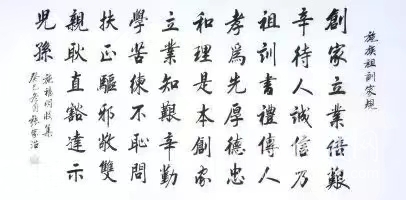 施族祖訓家規
創家立業倍艱
辛待人誠信乃
祖訓書禮傳人
孝為先厚德忠
和理是本創家
立業知艱辛勤
學苦練不恥問
扶正驅邪敬雙
親耿直豁達示
兒孫
施福明收集
癸巳冬月